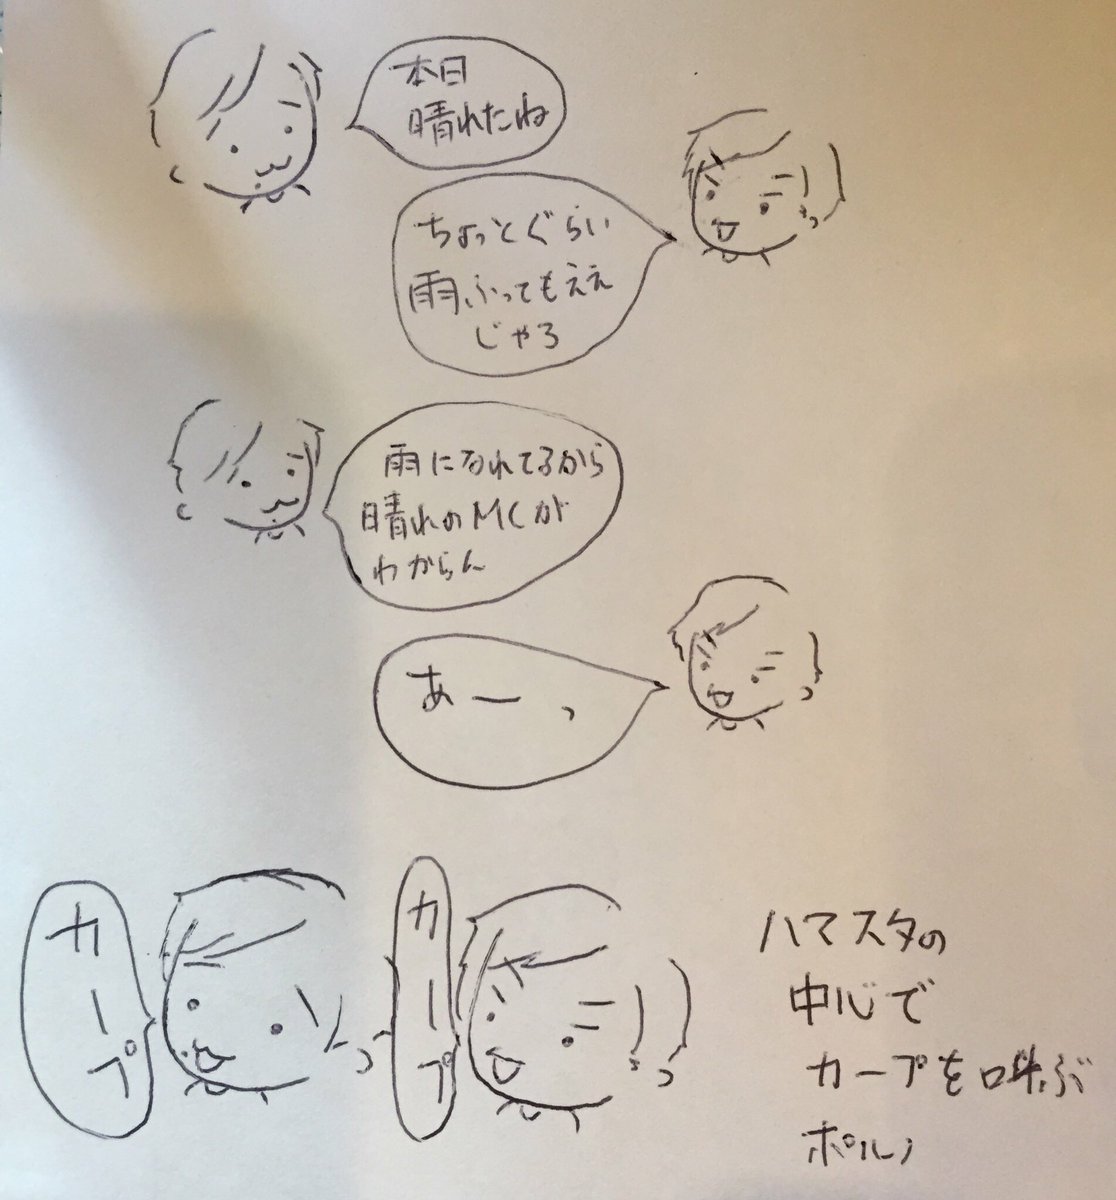 本日
晴れたね
ちょっとぐらい
雨ふってもええ
じゃろ
雨になれてるから
晴れのMCが
わからん
あーっ
カープ
カープ
ハマスタの
中心で
カープを叫ぶ
ポルノ